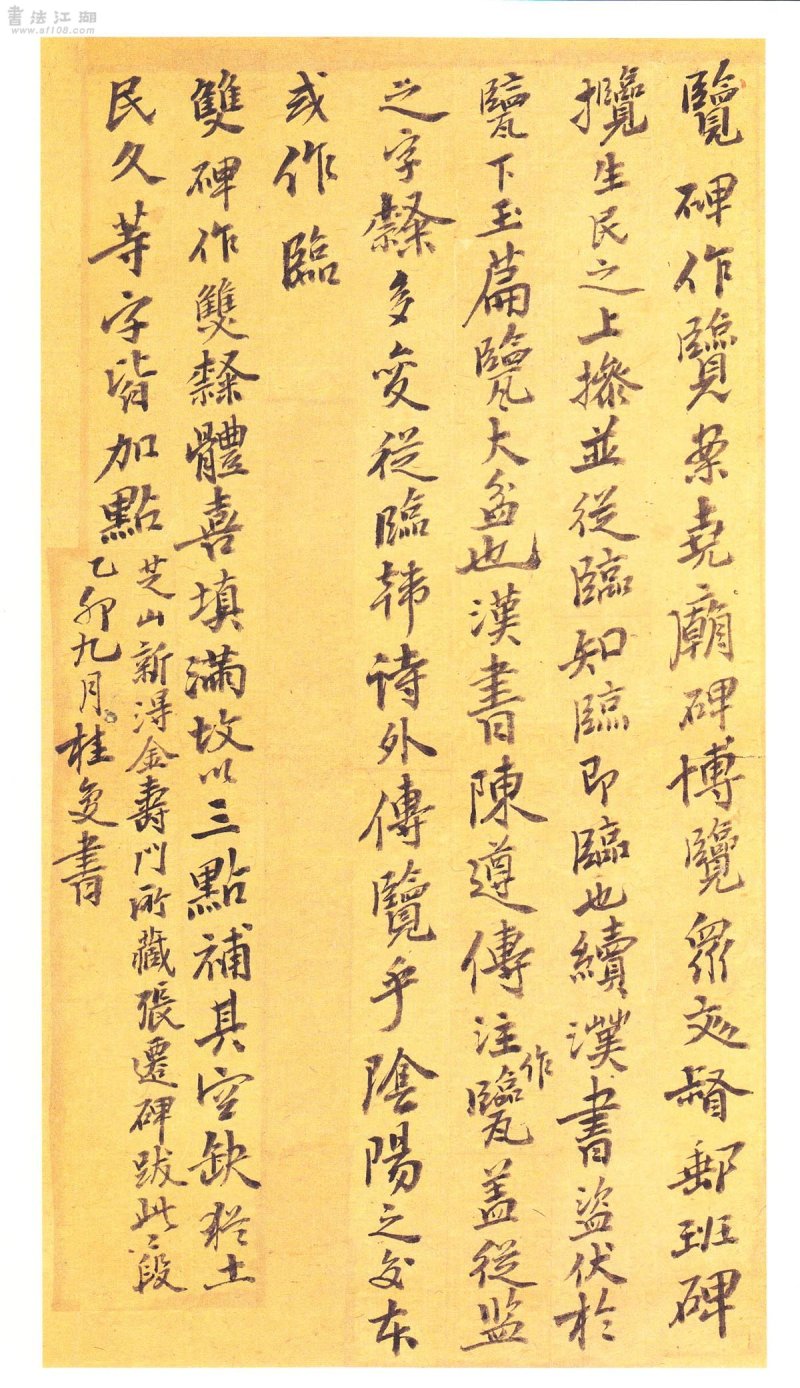 書法江湖
www.af108.com
覽碑作覽案堯廟碑博覽羣文督郵班碑
攬生民之上攃並從臨知臨即臨也續漢書盜伏於
甖下玉篇甖大盆也漢書陳遵傳注作甖蓋從监
之字隸多变從臨韩诗外傳覽乎陰陽之交本
或作臨
雙碑作雙隸體喜填滿故以三點補其空缺猶土
民久等字皆加點
芝山新得金壽门所藏張遷碑跋此二段
乙卯九月桂复書